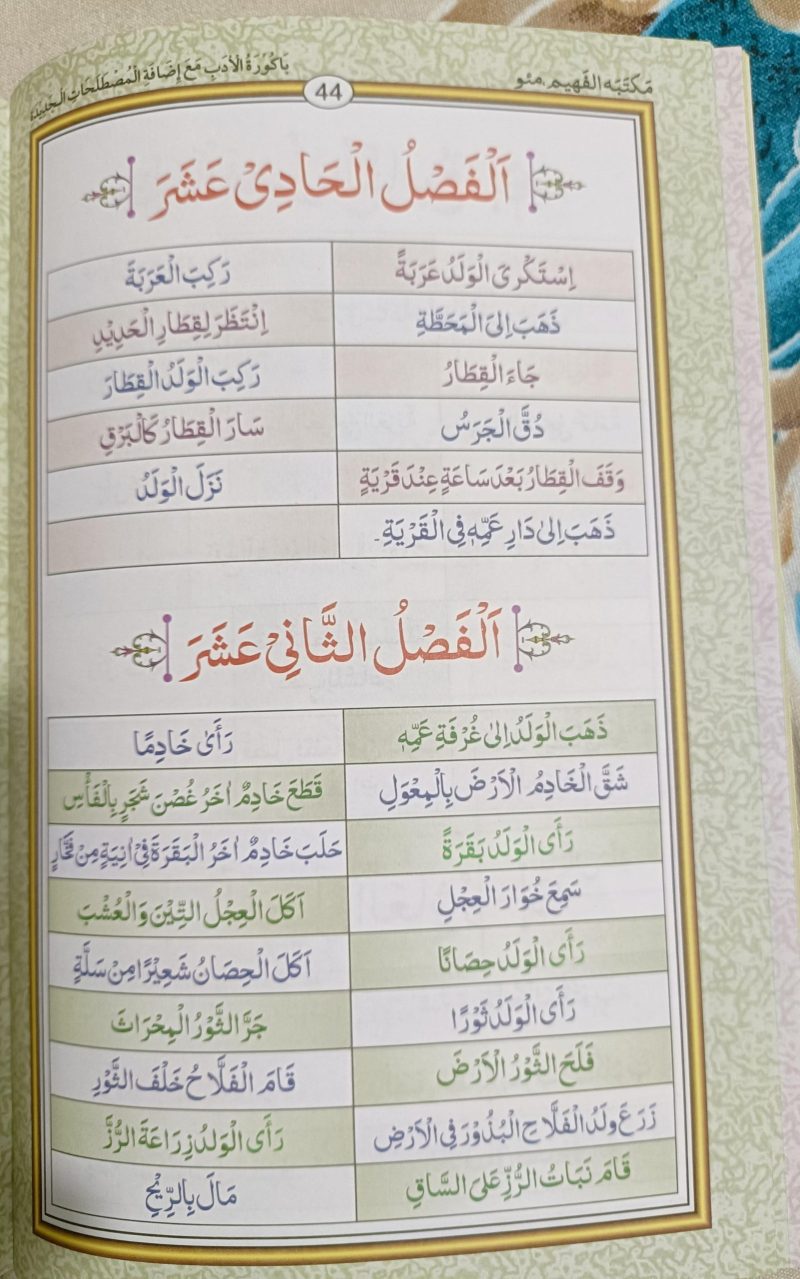 مَكتَبَه الفَهِيم، مئو
44
بَاكُورَةُ الْأَدَبِ مَعَ إِضَافَةِ الْمُصْطَلَحَاتِ الْجَدِيْدَة
اَلْفَصْلُ الْحَادِيْ عَشَرَ
اِسْتَكْرىَ الْوَلَدُ عَرَبَةً
رَكِبَ الْعَرَبَةَ
ذَهَبَ اِلىَ الْمَحَطَّةِ
اِنْتَظَرَ لِقِطَارِ الْحَدِيْدِ
جَاءَ الْقِطَارُ
رَكِبَ الْوَلَدُ الْقِطَارَ
دُقَّ الْجَرَسُ
سَارَ الْقِطَارُ كَالْبَرْقِ
وَقَفَ الْقِطَارُ بَعْدَ سَاعَةٍ عِنْدَ قَرْيَةٍ
نَزَلَ الْوَلَدُ
ذَهَبَ اِلىٰ دَارِ عَمِّهٖ فِي الْقَرْيَةِ۔
اَلْفَصْلُ الثَّانِيْ عَشَرَ
ذَهَبَ الْوَلَدُ اِلىٰ غُرْفَةِ عَمِّهٖ
رَأَىٰ خَادِمًا
شَقَّ الْخَادِمُ الْاَرْضَ بِالْمِعْوَلِ
قَطَعَ خَادِمٌ اٰخَرُ غُصْنَ شَجَرٍ بِالْفَأْسِ
رَأَى الْوَلَدُ بَقَرَةً
حَلَبَ خَادِمٌ اٰخَرُ الْبَقَرَةَ فِيْ اٰنِيَةٍ مِنْ فَخَّارٍ
سَمِعَ خُوَارَ الْعِجْلِ
اَكَلَ الْعِجْلُ التِّبْنَ وَالْعُشْبَ
رَأَى الْوَلَدُ حِصَانًا
اَكَلَ الْحِصَانُ شَعِيْرًا مِنْ سَلَّةٍ
رَأَى الْوَلَدُ ثَوْرًا
جَرَّ الثَّوْرُ الْمِحْرَاثَ
فَلَحَ الثَّوْرُ الْاَرْضَ
قَامَ الْفَلَّاحُ خَلْفَ الثَّوْرِ
زَرَعَ وَلَدُ الْفَلَّاحِ الْبُذُوْرَ فِي الْاَرْضِ
رَأَى الْوَلَدُ زِرَاعَةَ الرُّزِّ
قَامَ نَبَاتُ الرُّزِّ عَلىَ السَّاقِ
مَالَ بِالرِّيْحِ